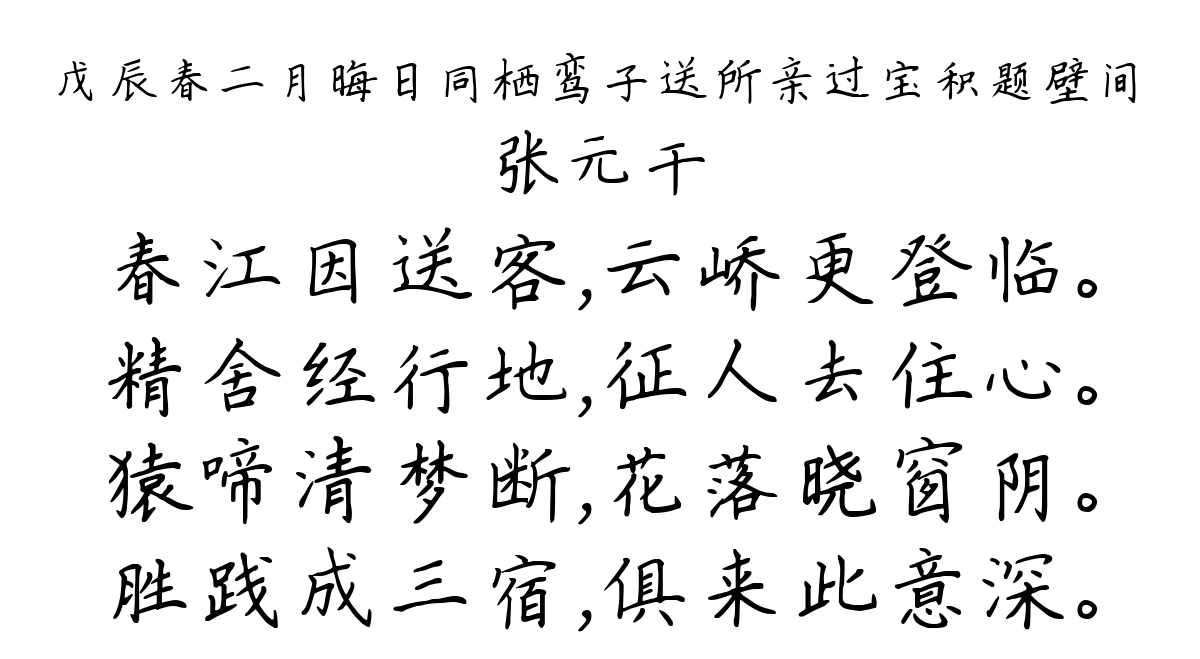 戊辰春二月晦日同栖鸾子送所亲过宝积题壁间
张元干
春江因送客,云峤更登临。
精舍经行地,征人去住心。
猿啼清梦断,花落晓窗阴。
胜践成三宿,俱来此意深。